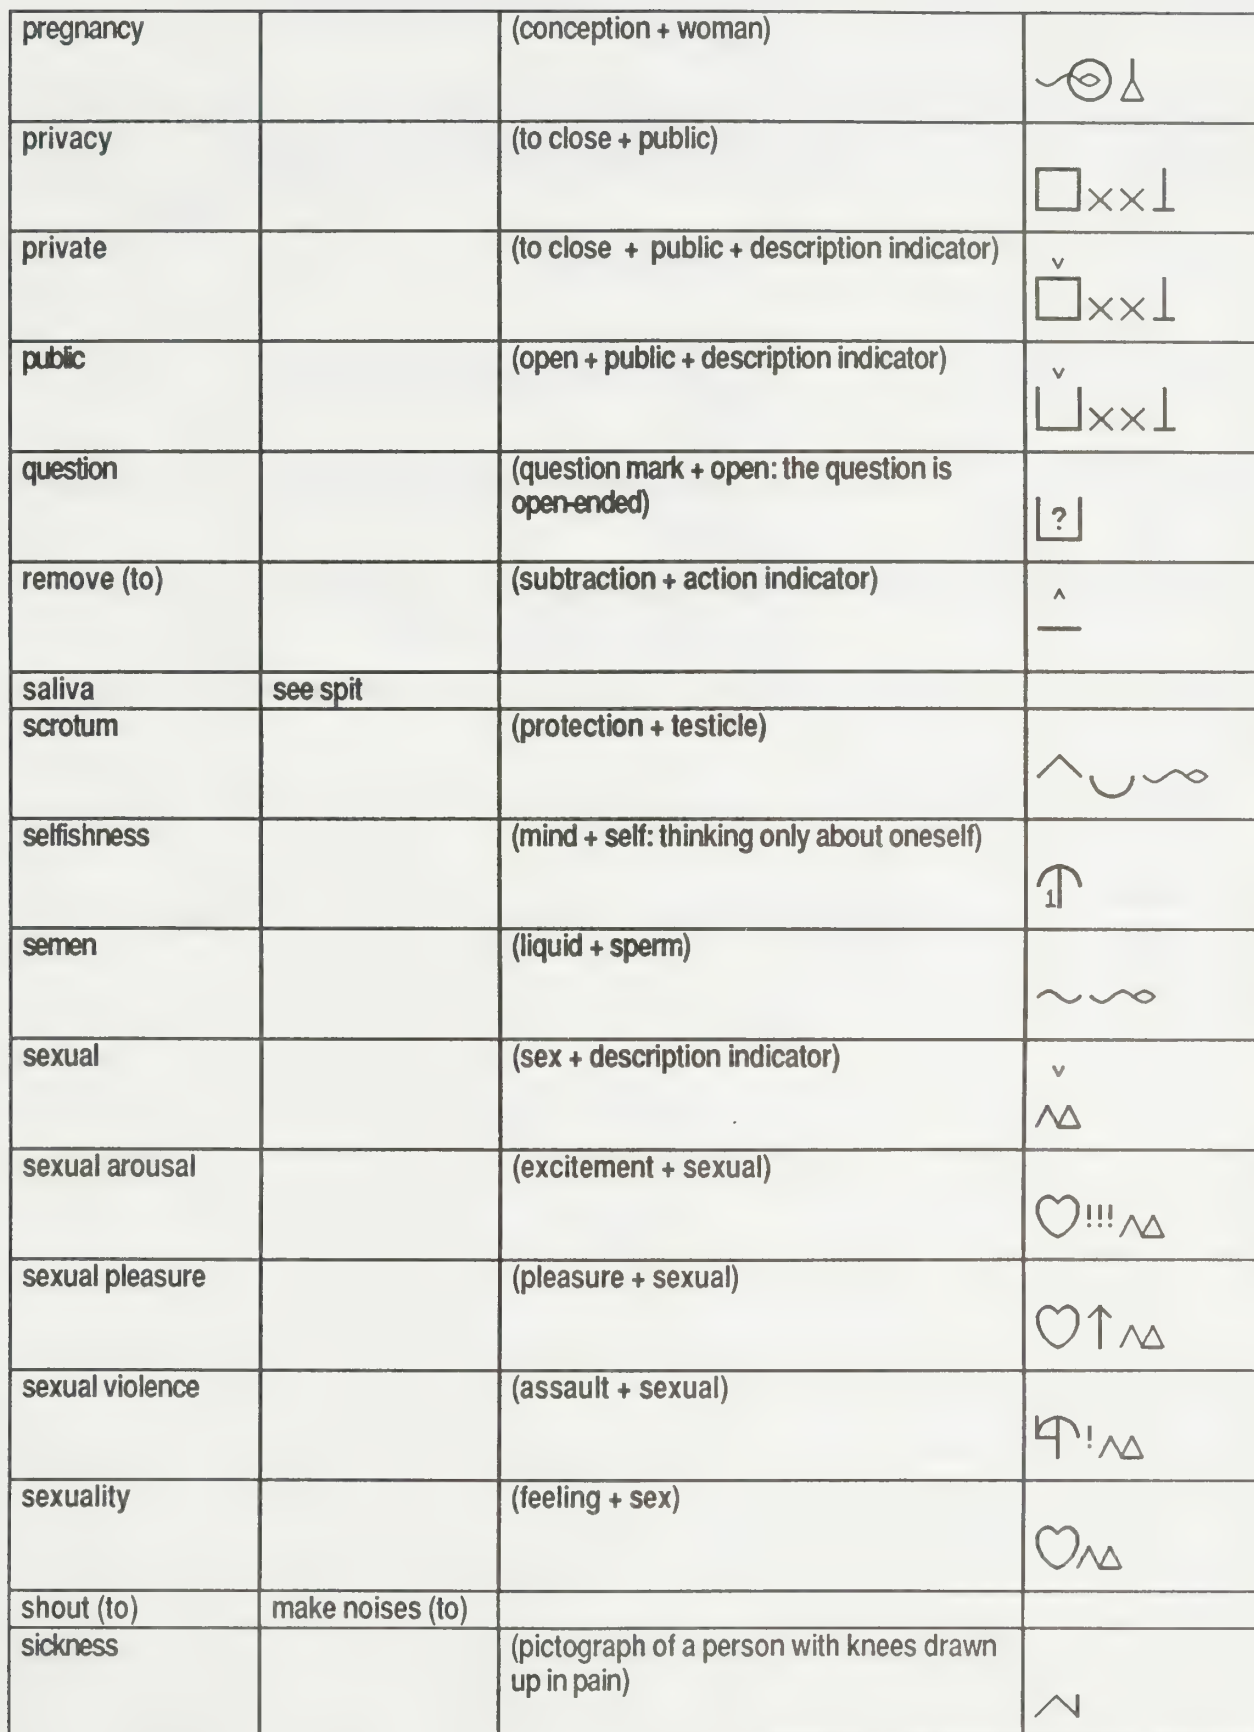 pregnancy (conception + woman)
privacy (to close + public)
private (to close + public + description indicator)
public (open + public + description indicator)
question (question mark + open: the question is
open-ended)
?
remove (to) (subtraction + action indicator)
saliva see spit
scrotum (protection + testicle)
selfishness (mind + self: thinking only about oneself)
1
semen (liquid + sperm)
sexual (sex + description indicator)
sexual arousal (excitement + sexual)
!!!
sexual pleasure (pleasure + sexual)
sexual violence (assault + sexual)
!
sexuality (feeling + sex)
shout (to) make noises (to)
sickness (pictograph of a person with knees drawn
up in pain)